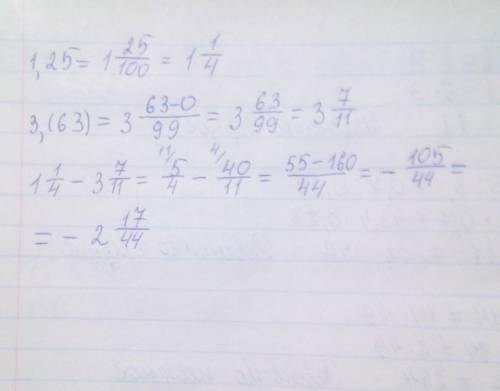 1,25 = 1 25/100 = 1 1/4
3,(63) = 3 63-0/99 = 3 63/99 = 3 7/11
1 1/4 - 3 7/11 = 11/ 5/4 - 4/ 40/11 = 55-160/44 = - 105/44 =
= - 2 17/44